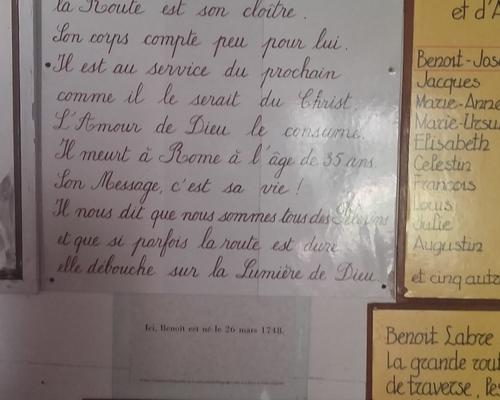 la Route est son cloître.
Son corps compte peu pour lui.
Il est au service du prochain
comme il le serait du Christ.
L'Amour de Dieu le consume.
Il meurt à Rome à l'âge de 35 ans.
Son Message, c'est sa vie !
Il nous dit que nous sommes tous des
et que si parfois la route est dure
elle débouche sur la Lumière de Dieu.
Ici, Benoit est né le 26 mars 1748.
et d'A
Benoit-Jos
Jacques
Marie-Anne
Marie-Ursu
Elisabeth
Celestin
François
Louis
Julie
Augustin
et cinq autr
Benoit Labre
La grande rout
de traverse, Pes